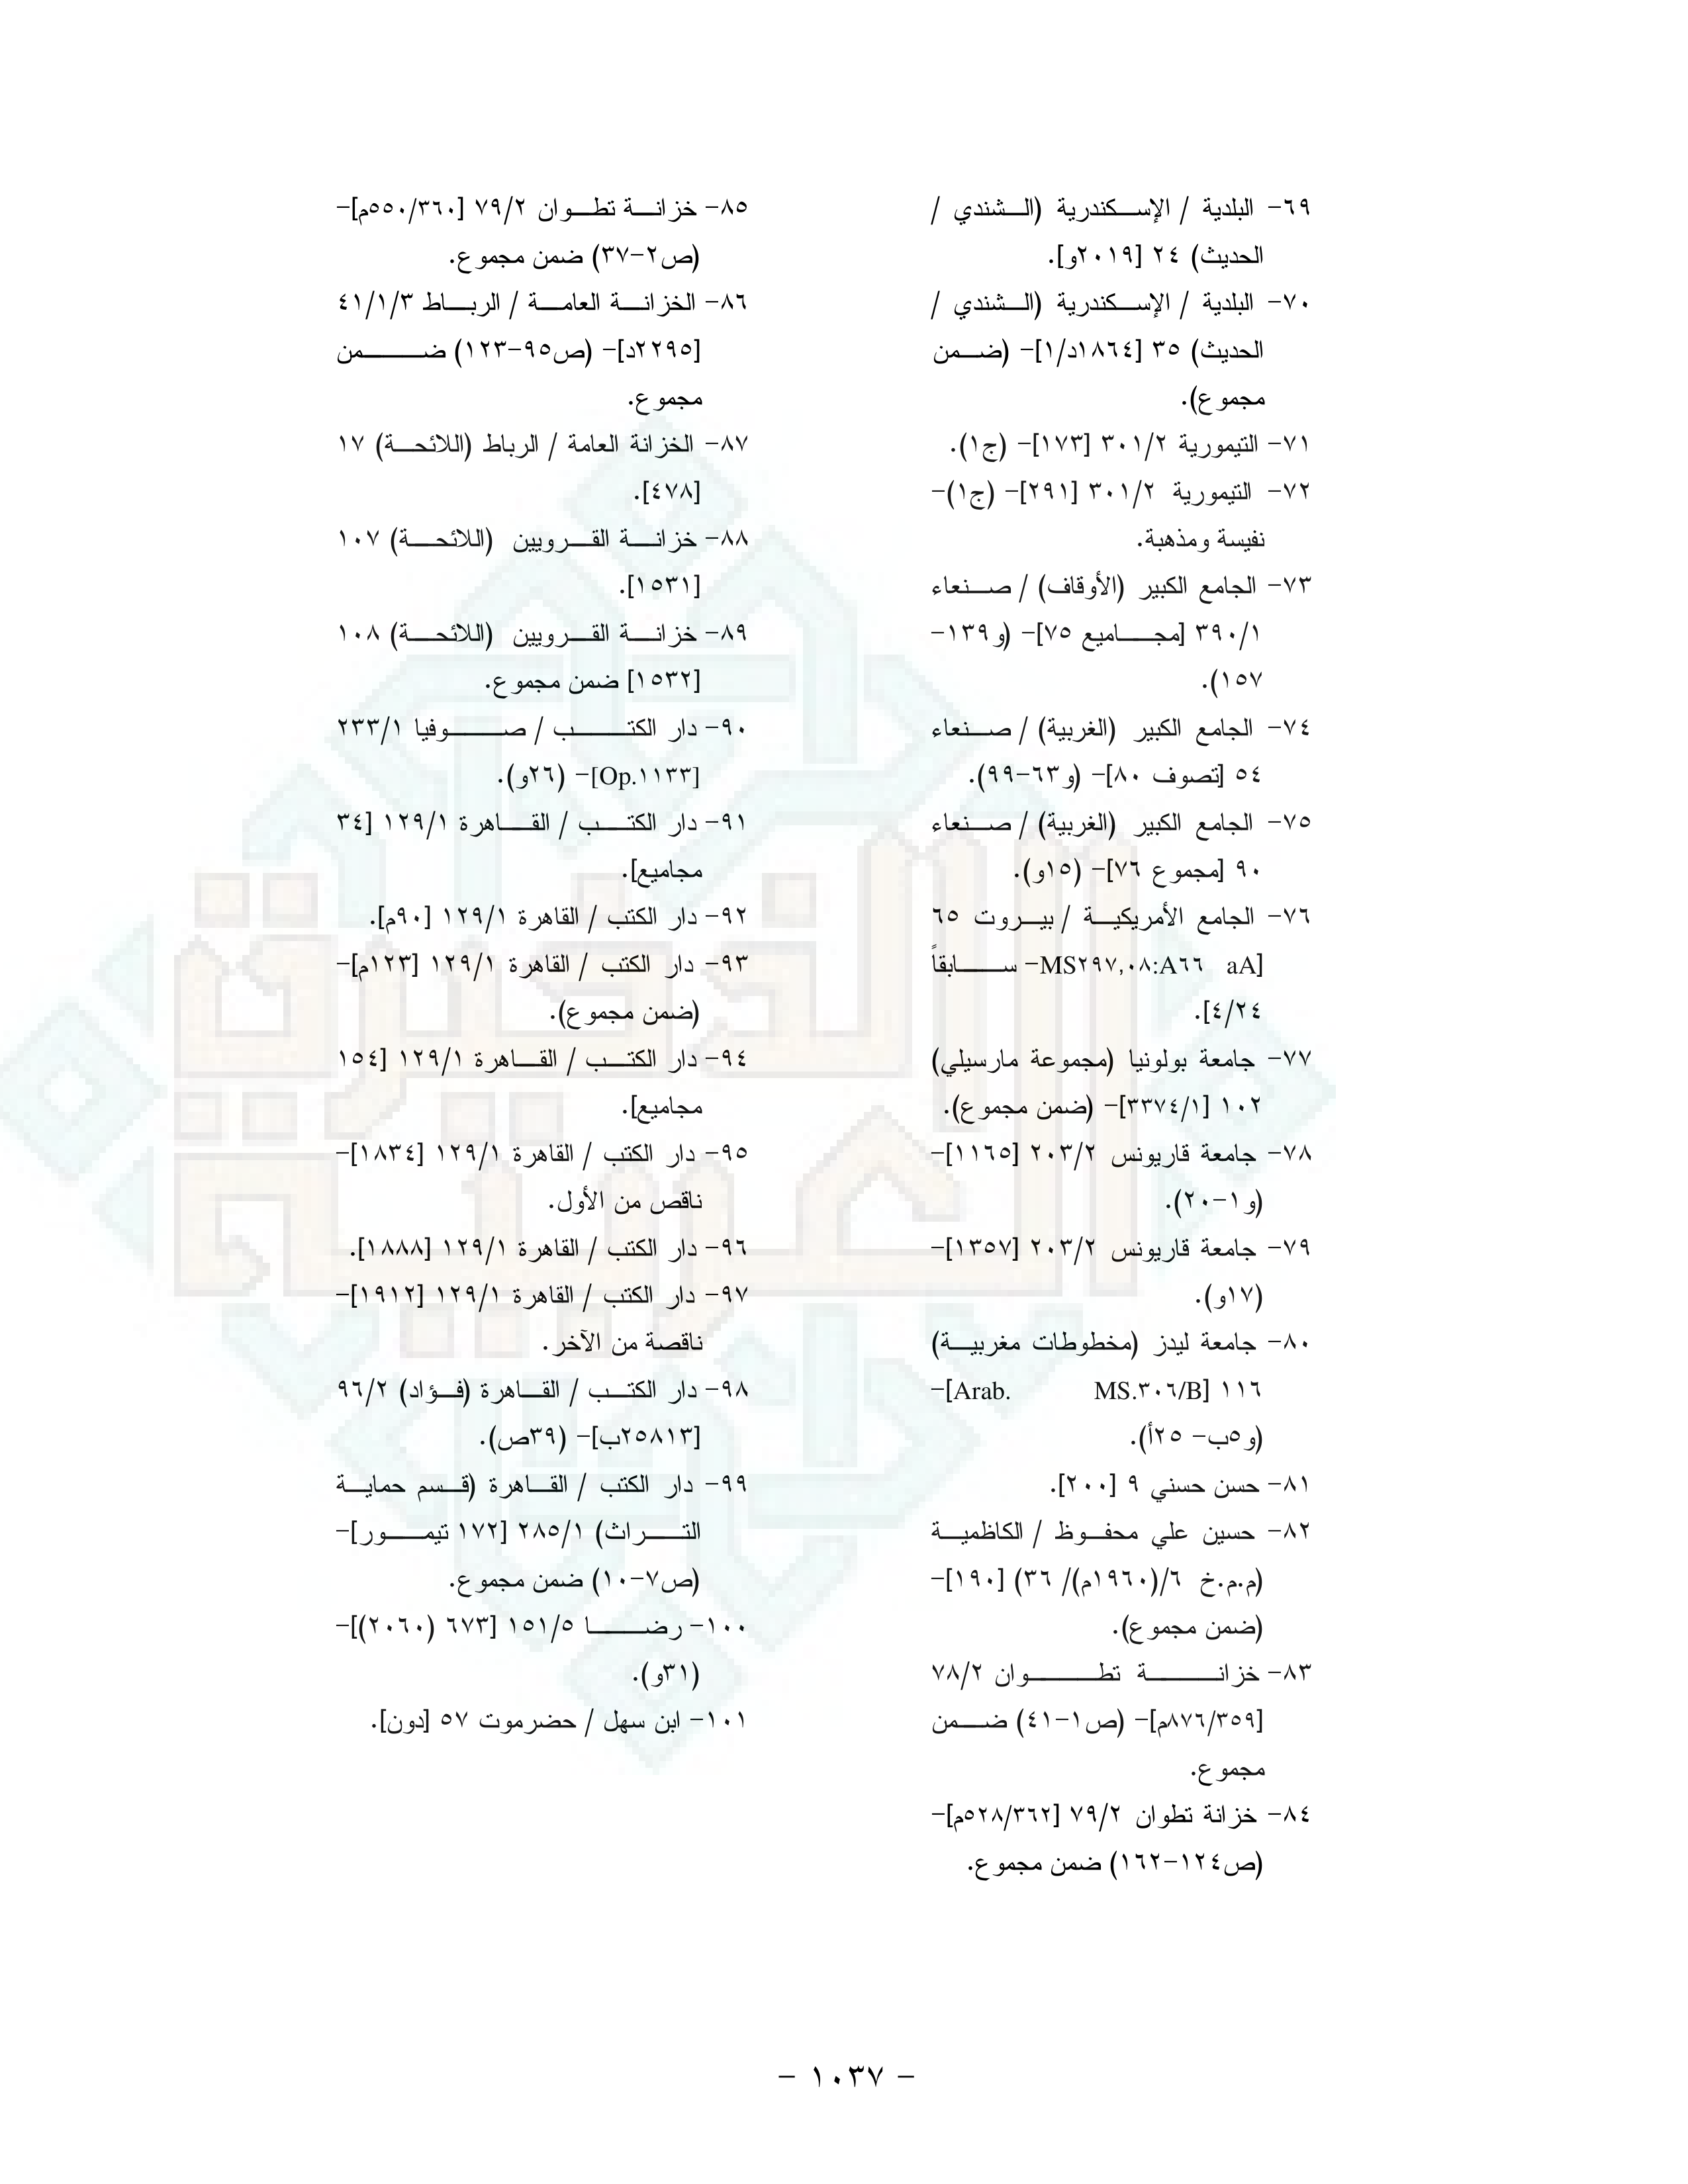 ٦٩- البلدية / الإسكندرية (الشندي /
الحديث) ٢٤ [٢٠١٩و].
٧٠- البلدية / الإسكندرية (الشندي /
الحديث) ٣٥ [١٨٦٤د/١]- (ضمن
مجموع).
٧١- التيمورية ٣٠١/٢ [١٧٣]- (ج١).
٧٢- التيمورية ٣٠١/٢ [٢٩١]- (ج١)-
نفيسة ومذهبة.
٧٣- الجامع الكبير (الأوقاف) / صنعاء
٣٩٠/١ [مجاميع ٧٥]- (و١٣٩-
١٥٧).
٧٤- الجامع الكبير (الغربية) / صنعاء
٥٤ [تصوف ٨٠]- (و٦٣-٩٩).
٧٥- الجامع الكبير (الغربية) / صنعاء
٩٠ [مجموع ٧٦]- (١٥و).
٧٦- الجامع الأمريكية / بيروت ٦٥
[MS٢٩٧,٠٨:A٦٦ aA- سابقاً
٤/٢٤].
٧٧- جامعة بولونيا (مجموعة مارسيلي)
١٠٢ [٣٣٧٤/١]- (ضمن مجموع).
٧٨- جامعة قاريونس ٢٠٣/٢ [١١٦٥]-
(و١-٢٠).
٧٩- جامعة قاريونس ٢٠٣/٢ [١٣٥٧]-
(١٧و).
٨٠- جامعة ليدز (مخطوطات مغربية)
١١٦ [Arab. MS.٣٠٦/B]-
(و٥ب- ٢٥أ).
٨١- حسن حسني ٩ [٢٠٠].
٨٢- حسين علي محفوظ / الكاظمية
(م.م.خ ٦/(١٩٦٠م)/ ٣٦) [١٩٠]-
(ضمن مجموع).
٨٣- خزانة تطوان ٧٨/٢
[٨٧٦/٣٥٩م]- (ص١-٤١) ضمن
مجموع.
٨٤- خزانة تطوان ٧٩/٢ [٥٢٨/٣٦٢م]-
(ص١٢٤-١٦٢) ضمن مجموع.
٨٥- خزانة تطوان ٧٩/٢ [٥٥٠/٣٦٠م]-
(ص٢-٣٧) ضمن مجموع.
٨٦- الخزانة العامة / الرباط ٤١/١/٣
[٢٢٩٥د]- (ص٩٥-١٢٣) ضمن
مجموع.
٨٧- الخزانة العامة / الرباط (اللائحة) ١٧
[٤٧٨].
٨٨- خزانة القرويين (اللائحة) ١٠٧
[١٥٣١].
٨٩- خزانة القرويين (اللائحة) ١٠٨
[١٥٣٢] ضمن مجموع.
٩٠- دار الكتب / صوفيا ٢٣٣/١
[Op.١١٣٣]- (٢٦و).
٩١- دار الكتب / القاهرة ١٢٩/١ [٣٤
مجاميع].
٩٢- دار الكتب / القاهرة ١٢٩/١ [٩٠م].
٩٣- دار الكتب / القاهرة ١٢٩/١ [١٢٣م]-
(ضمن مجموع).
٩٤- دار الكتب / القاهرة ١٢٩/١ [١٥٤
مجاميع].
٩٥- دار الكتب / القاهرة ١٢٩/١ [١٨٣٤]-
ناقص من الأول.
٩٦- دار الكتب / القاهرة ١٢٩/١ [١٨٨٨].
٩٧- دار الكتب / القاهرة ١٢٩/١ [١٩١٢]-
ناقصة من الآخر.
٩٨- دار الكتب / القاهرة (فؤاد) ٩٦/٢
[٢٥٨١٣ب]- (٣٩ص).
٩٩- دار الكتب / القاهرة (قسم حماية
التراث) ٢٨٥/١ [١٧٢ تيمور]-
(ص٧-١٠) ضمن مجموع.
١٠٠- رضا ١٥١/٥ [٦٧٣ (٢٠٦٠)]-
(٣١و).
١٠١- ابن سهل / حضرموت ٥٧ [دون].
الذخيرة
العربية
- ١٠٣٧ -